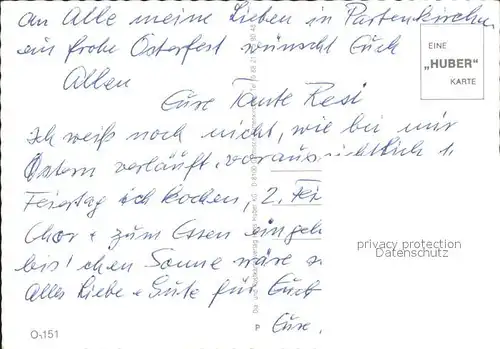 an Alle meine Lieben in Partenkirchen
ein frohe Osterfest wünscht Euch
Allen
Eure Tante Resi
Ich weiß noch nicht, wie bei mir
Ostern verläuft, voraussichtlich 1.
Feiertag ich kochen, 2. Fei
Chor + zum Essen eingel
bis'chen Sonne wäre s
Alles Liebe + Gute für Euch
Eure.
EINE
„HUBER"
KARTE
privacy protection
Datenschutz
O-151
P